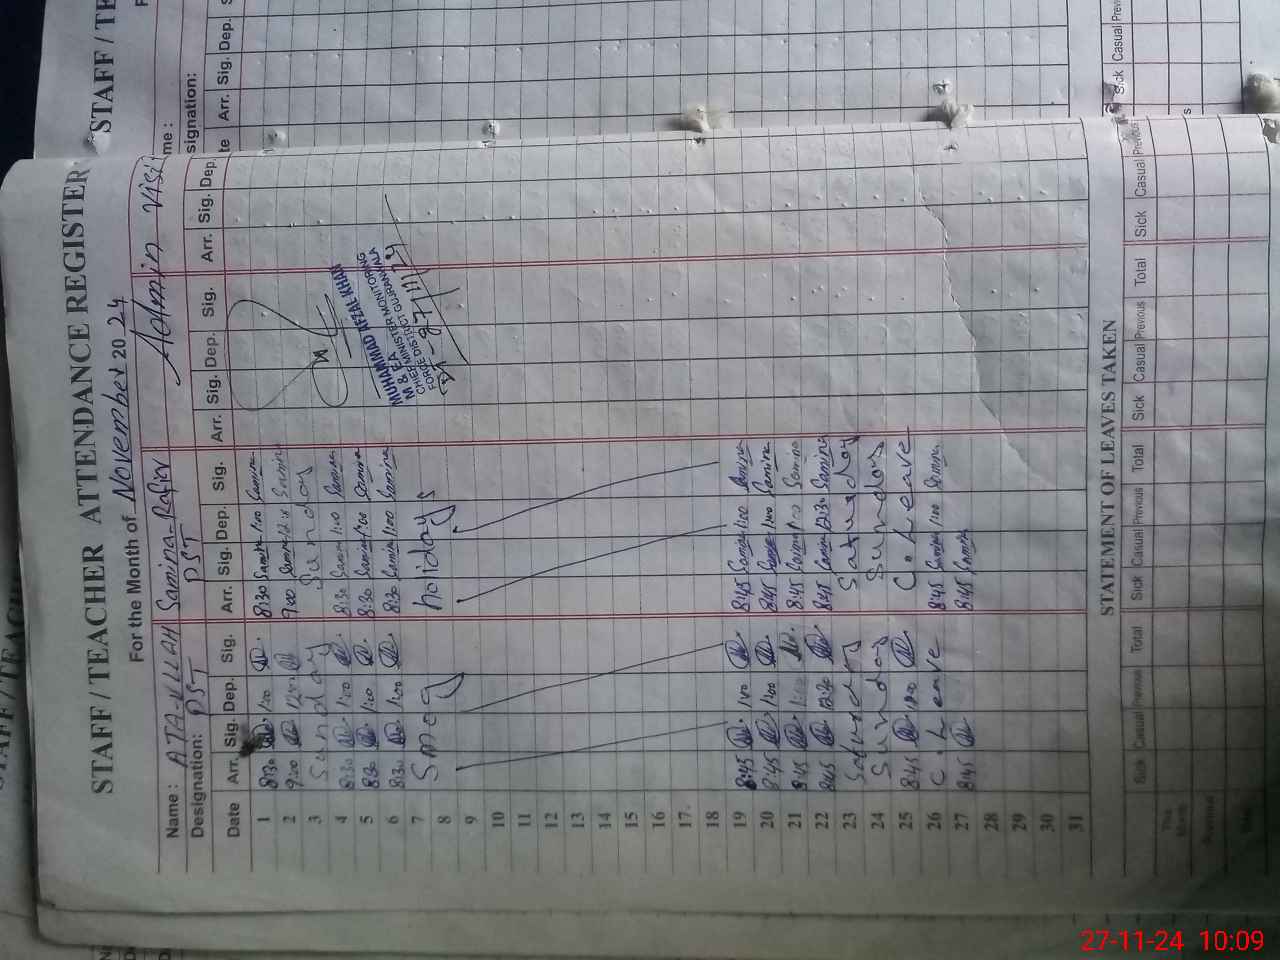 STAFF / TEACHER ATTENDANCE REGISTER
For the Month of November 20 24
Name : ATA-ULLAH Samina-Rafiq Admin Visit
Designation: PST PST
Date Arr. Sig. Dep. Sig. Arr. Sig. Dep. Sig. Arr. Sig. Dep. Sig. Arr. Sig. Dep.
1 8:30 1:00 8:30 Samina 1:00 Samina
2 9:00 9:00 Samina Samina
3 Sunday Sunday
4 8:30 1:00 8:30 Samina 1:00 Samina
5 8:30 1:00 8:30 Samina 1:00 Samina
6 8:30 1:00 8:30 Samina 1:00 Samina
7 Smog holidays
8
9
10
11
12
13
14
15
16
17.
18
19 8:45 1:00 8:45 Samina 1:00 Samina
20 8:45 1:00 8:45 Samina 1:00 Samina
21 8:45 1:00 8:45 Samina 1:00 Samina
22 8:45 12:30 8:45 Samina 12:30 Samina
23 Saturday Saturday
24 Sunday Sunday
25 8:45 1:00 C. Leave
26 C. Leave 8:45 Samina 1:00 Samina
27 8:45 8:45 Samina
28
29
30
31
MUHAMMAD AFZAL KHAN
M & EA
CHIEF MINISTER MONITORING
FORCE DISTRICT GUJRANWALA
27/11/24
STATEMENT OF LEAVES TAKEN
Sick Casual Previous Total Sick Casual Previous Total Sick Casual Previous Total Sick Casual Previous
STAFF / TE
me :
signation:
te Arr. Sig. Dep.
Arr. Sig. Dep.
Sick Casual
27-11-24 10:09